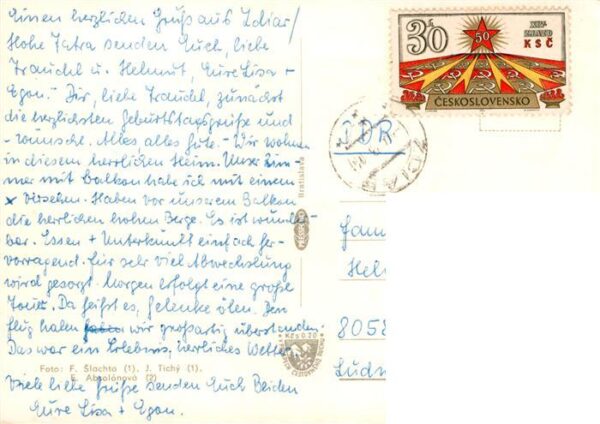 Einen herzlichen Gruß aus Zdiar /
Hohe Tatra senden Euch, liebe
Traudel u. Helmut, Eure Lisa +
Egon. Dir, liebe Traudel, zunächst
die herzlichsten Geburtstagsgrüße und
- wünsche. Alles alles Gute. - Wir wohnen
in diesem herrlichen Heim. Unser Zim-
mer mit Balkon habe ich mit einem
x versehen. Haben vor unserem Balkon
die herrlichen hohen Berge. Es ist wunder-
bar. Essen + Unterkunft einfach her-
vorragend. Für sehr viel Abwechslung
wird gesorgt. Morgen erfolgt eine große
Tour. Da heißt es, Gelenke ölen. Den
Flug haben wir großartig überstanden.
Das war ein Erlebnis, herrliches Wetter.
Viele liebe Grüße senden Euch Beiden
Eure Lisa + Egon.
Foto: F. Šlachta (1), J. Tichý (1).
E. Absolónová (2)
Bratislava
PRESSFOTO
Kčs 0.20
30 h
50
XIV.
ZJAZD
KSČ
ČESKOSLOVENSKO
DDR
ZDIAR
Fam
Hel
8058
Ludw